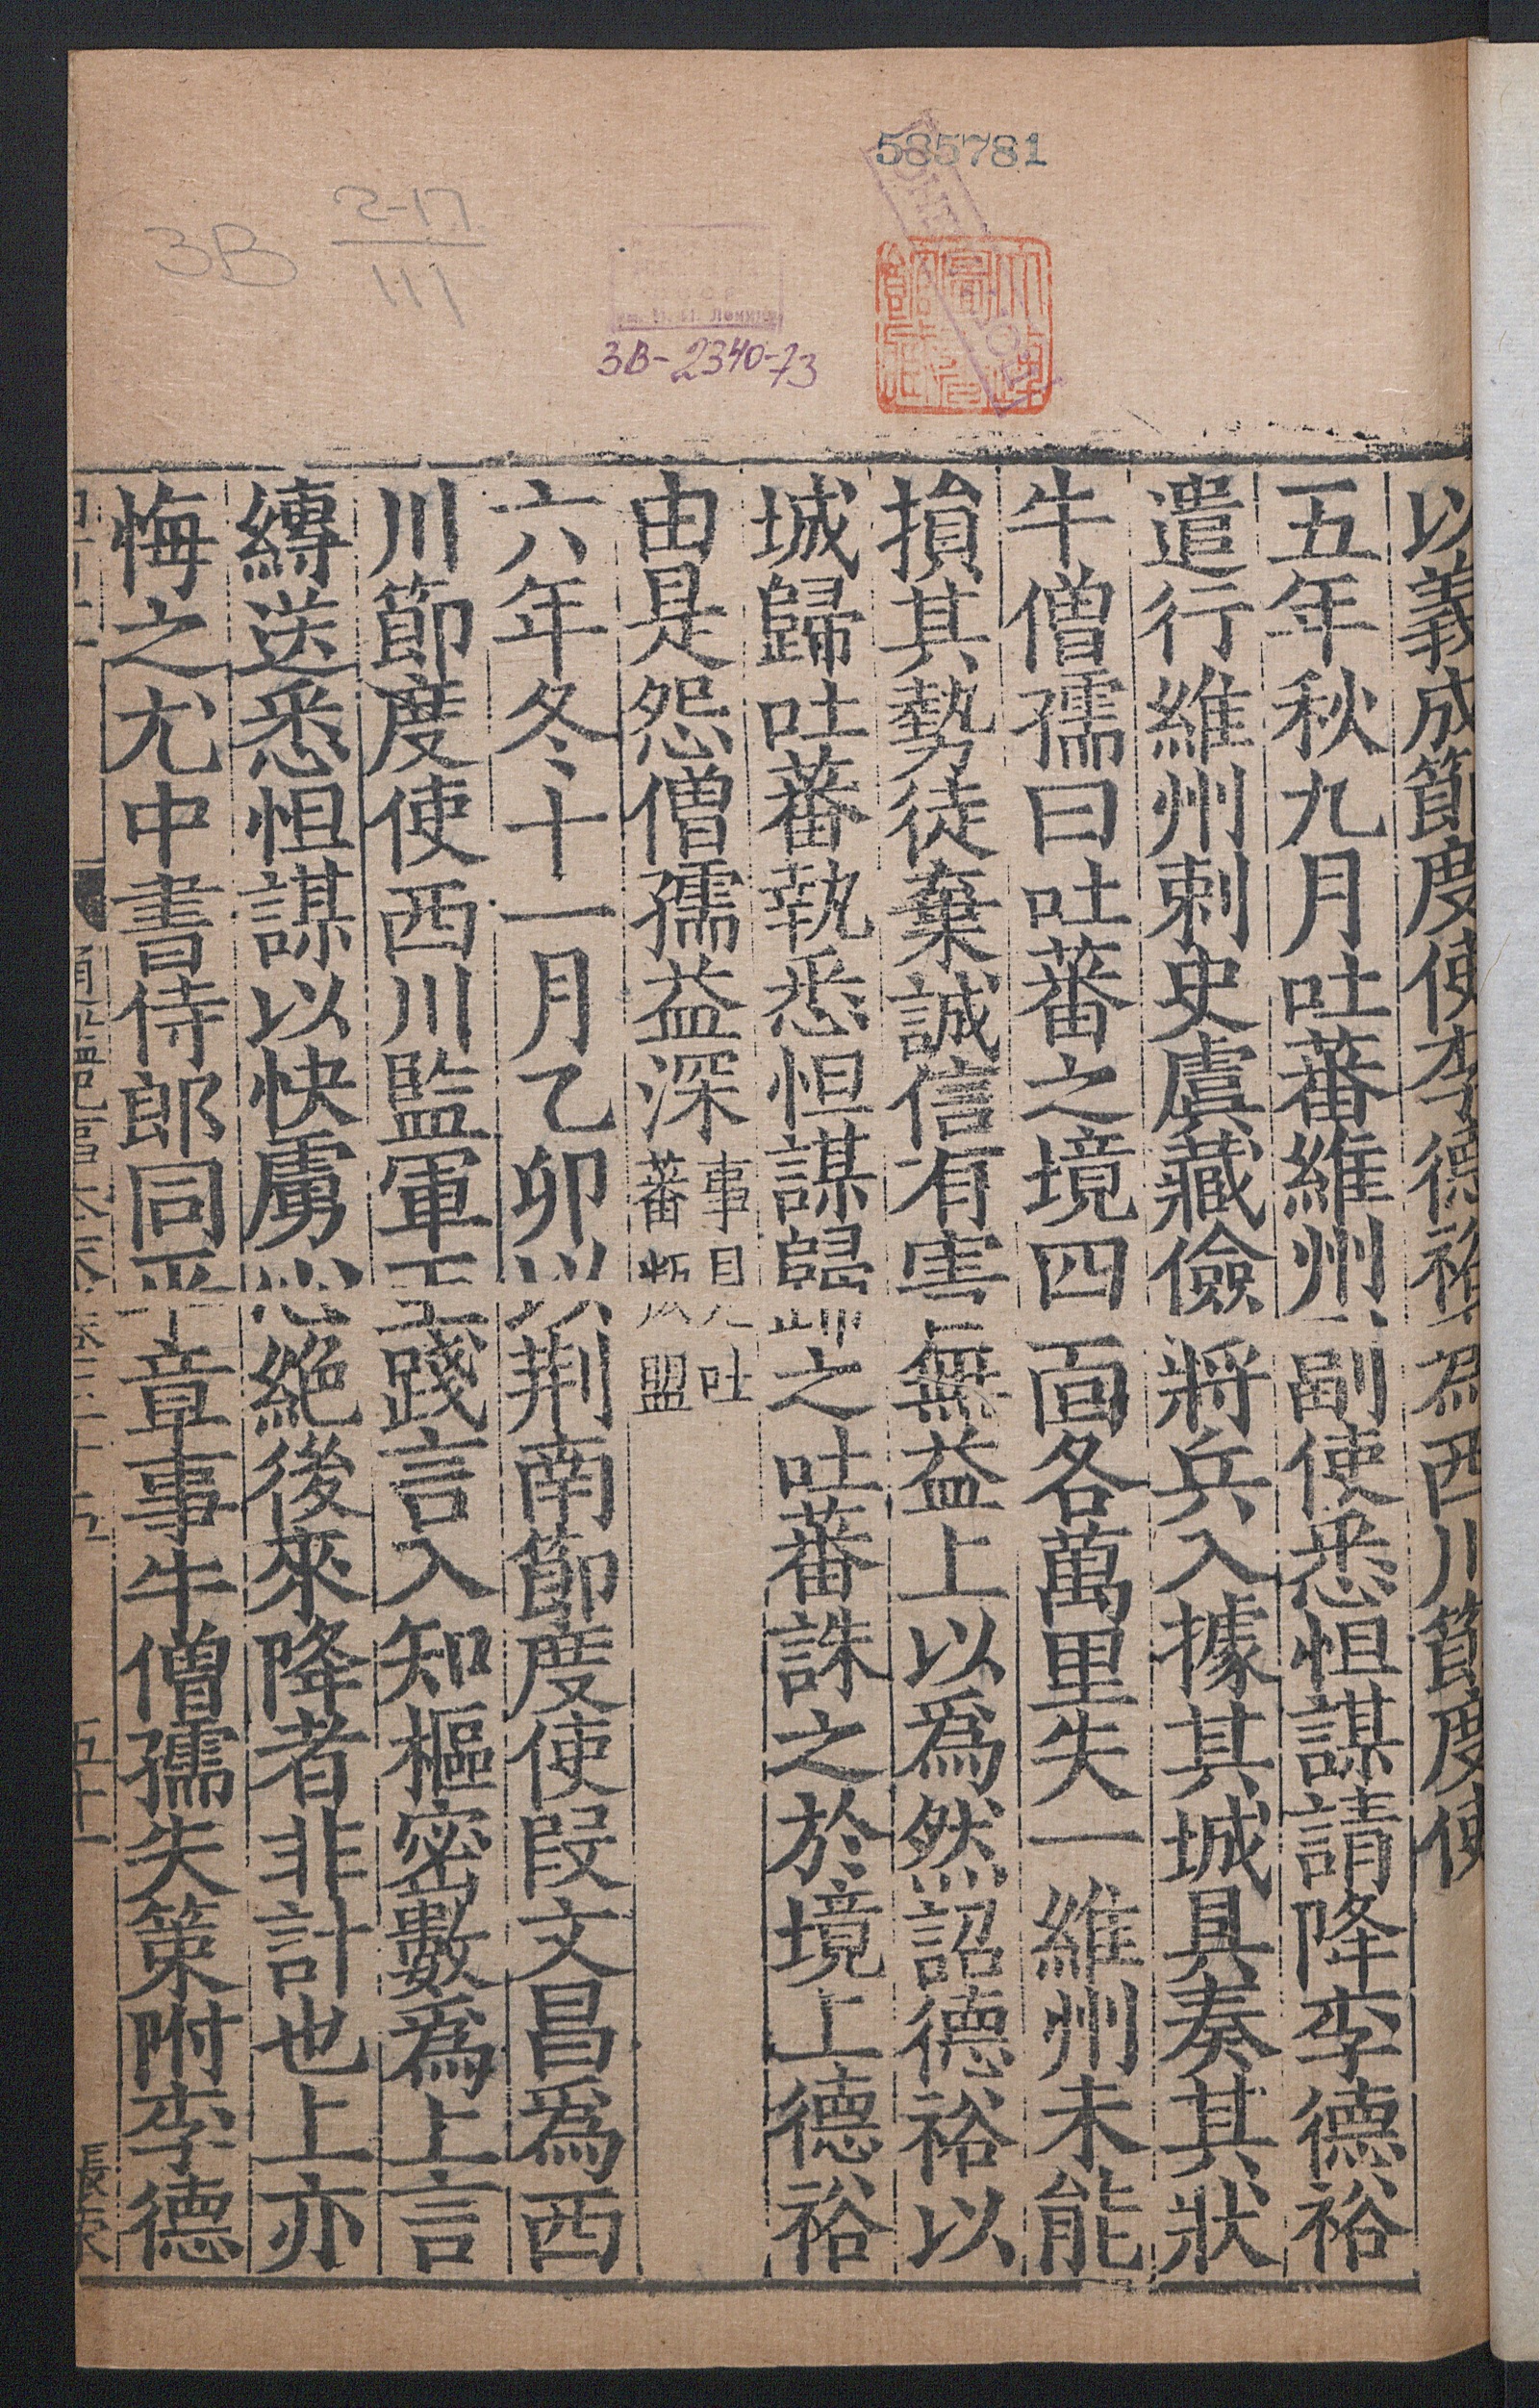 585781
3В 2-17
111
3В-2340-73
以義成節度使李德裕為西川節度使
五年秋九月吐蕃維州副使悉怛謀請降李德裕
遣行維州刺史虞藏儉將兵入據其城具奏其狀
牛僧孺曰吐蕃之境四面各萬里失一維州未能
損其勢徒棄誠信有害無益上以爲然詔德裕以
城歸吐蕃執悉怛謀歸之吐蕃誅之於境上德裕
由是怨僧孺益深事見吐
蕃叛盟
六年冬十一月乙卯以荆南節度使段文昌爲西
川節度使西川監軍王踐言入知樞密數爲上言
縛送悉怛謀以快虜心絶後來降者非計也上亦
悔之尤中書侍郎同平章事牛僧孺失策附李德